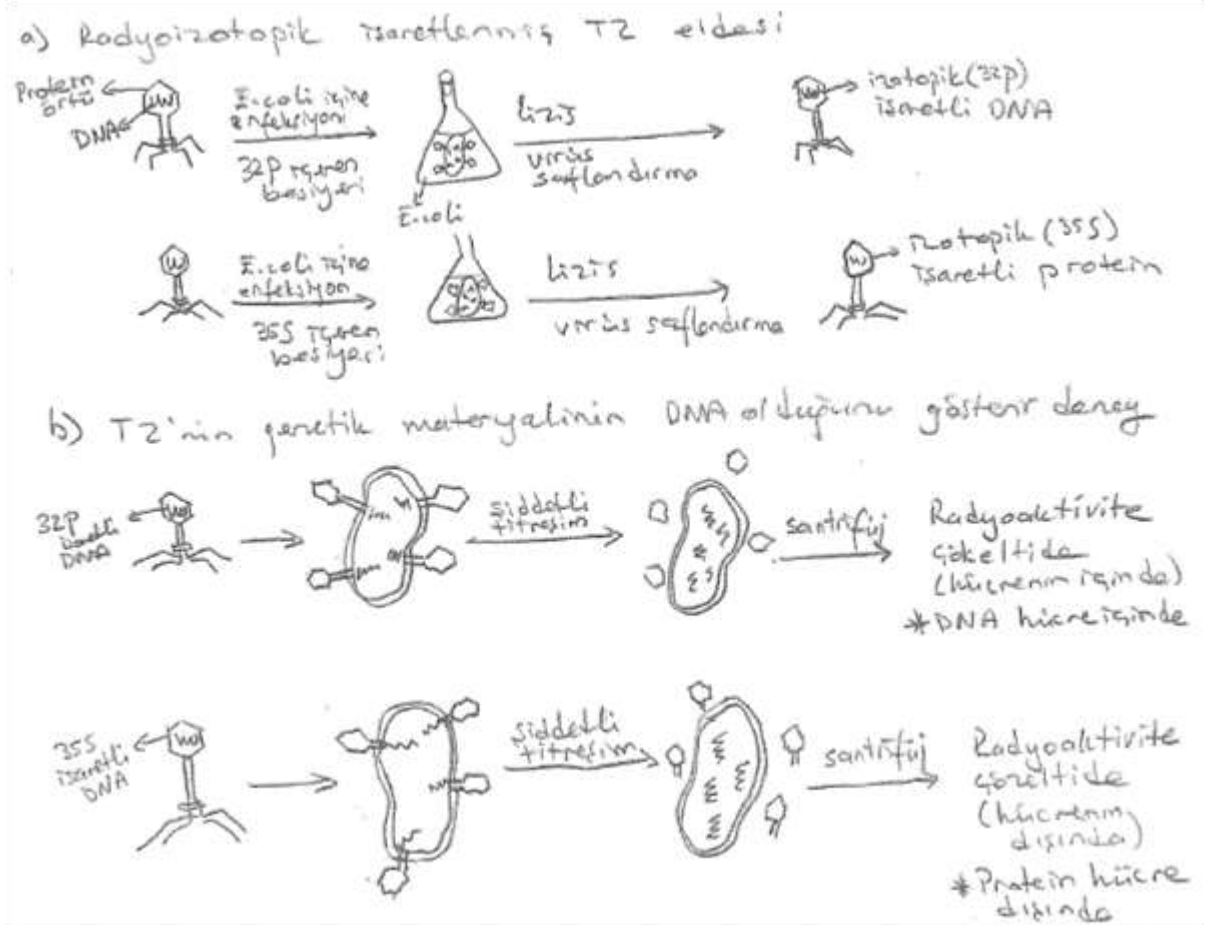 a) Radyoizotopik işaretlenmiş T2 eldesi
Protein
örtü
DNA
E.coli içine
enfeksiyon
32P içeren
besiyeri
E.coli
lizis
virüs
saflandırma
izotopik (32p)
işaretli DNA
E.coli içine
enfeksiyon
35S içeren
besiyeri
lizis
virüs saflandırma
izotopik (35S)
işaretli protein
b) T2'nin genetik materyalinin DNA olduğunu gösterir deney
32P
işaretli
DNA
şiddetli
titreşim
santrifüj
Radyoaktivite
çökeltide
(hücrenin içinde)
*DNA hücre içinde
35S
işaretli
DNA
şiddetli
titreşim
santrifüj
Radyoaktivite
çözeltide
(hücrenin
dışında)
*Protein hücre
dışında